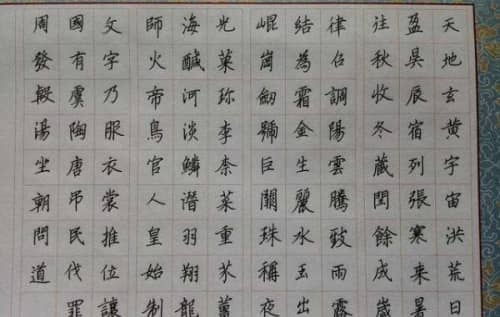 天地玄黄宇宙洪荒日
盈昃辰宿列張寒来暑
往秋收冬藏閏餘成歲
律吕調陽雲騰致雨露
結為霜金生麗水玉出
崐崗劒號巨闕珠稱夜
光菓珍李柰菜重芥薑
海鹹河淡鱗潛羽翔龍
師火帝鳥官人皇始制
文字乃服衣裳推位讓
國有虞陶唐吊民伐罪
周發殷湯坐朝問道